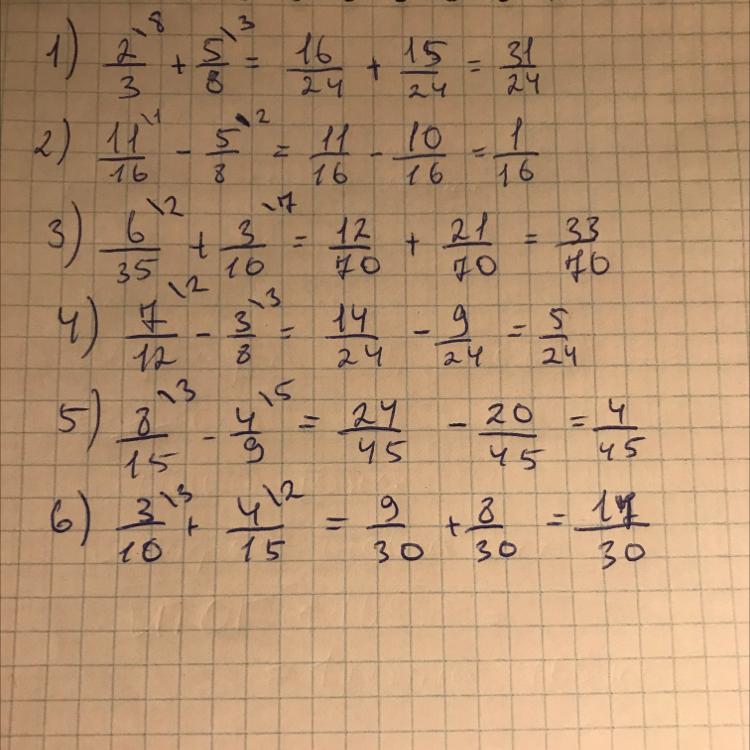 1) 2\8/3 + 5\3/8 = 16/24 + 15/24 = 31/24
2) 11\1/16 - 5\2/8 = 11/16 - 10/16 = 1/16
3) 6\2/35 + 3\7/10 = 12/70 + 21/70 = 33/70
4) 7\2/12 - 3\3/8 = 14/24 - 9/24 = 5/24
5) 8\3/15 - 4\5/9 = 24/45 - 20/45 = 4/45
6) 3\3/10 + 4\2/15 = 9/30 + 8/30 = 17/30